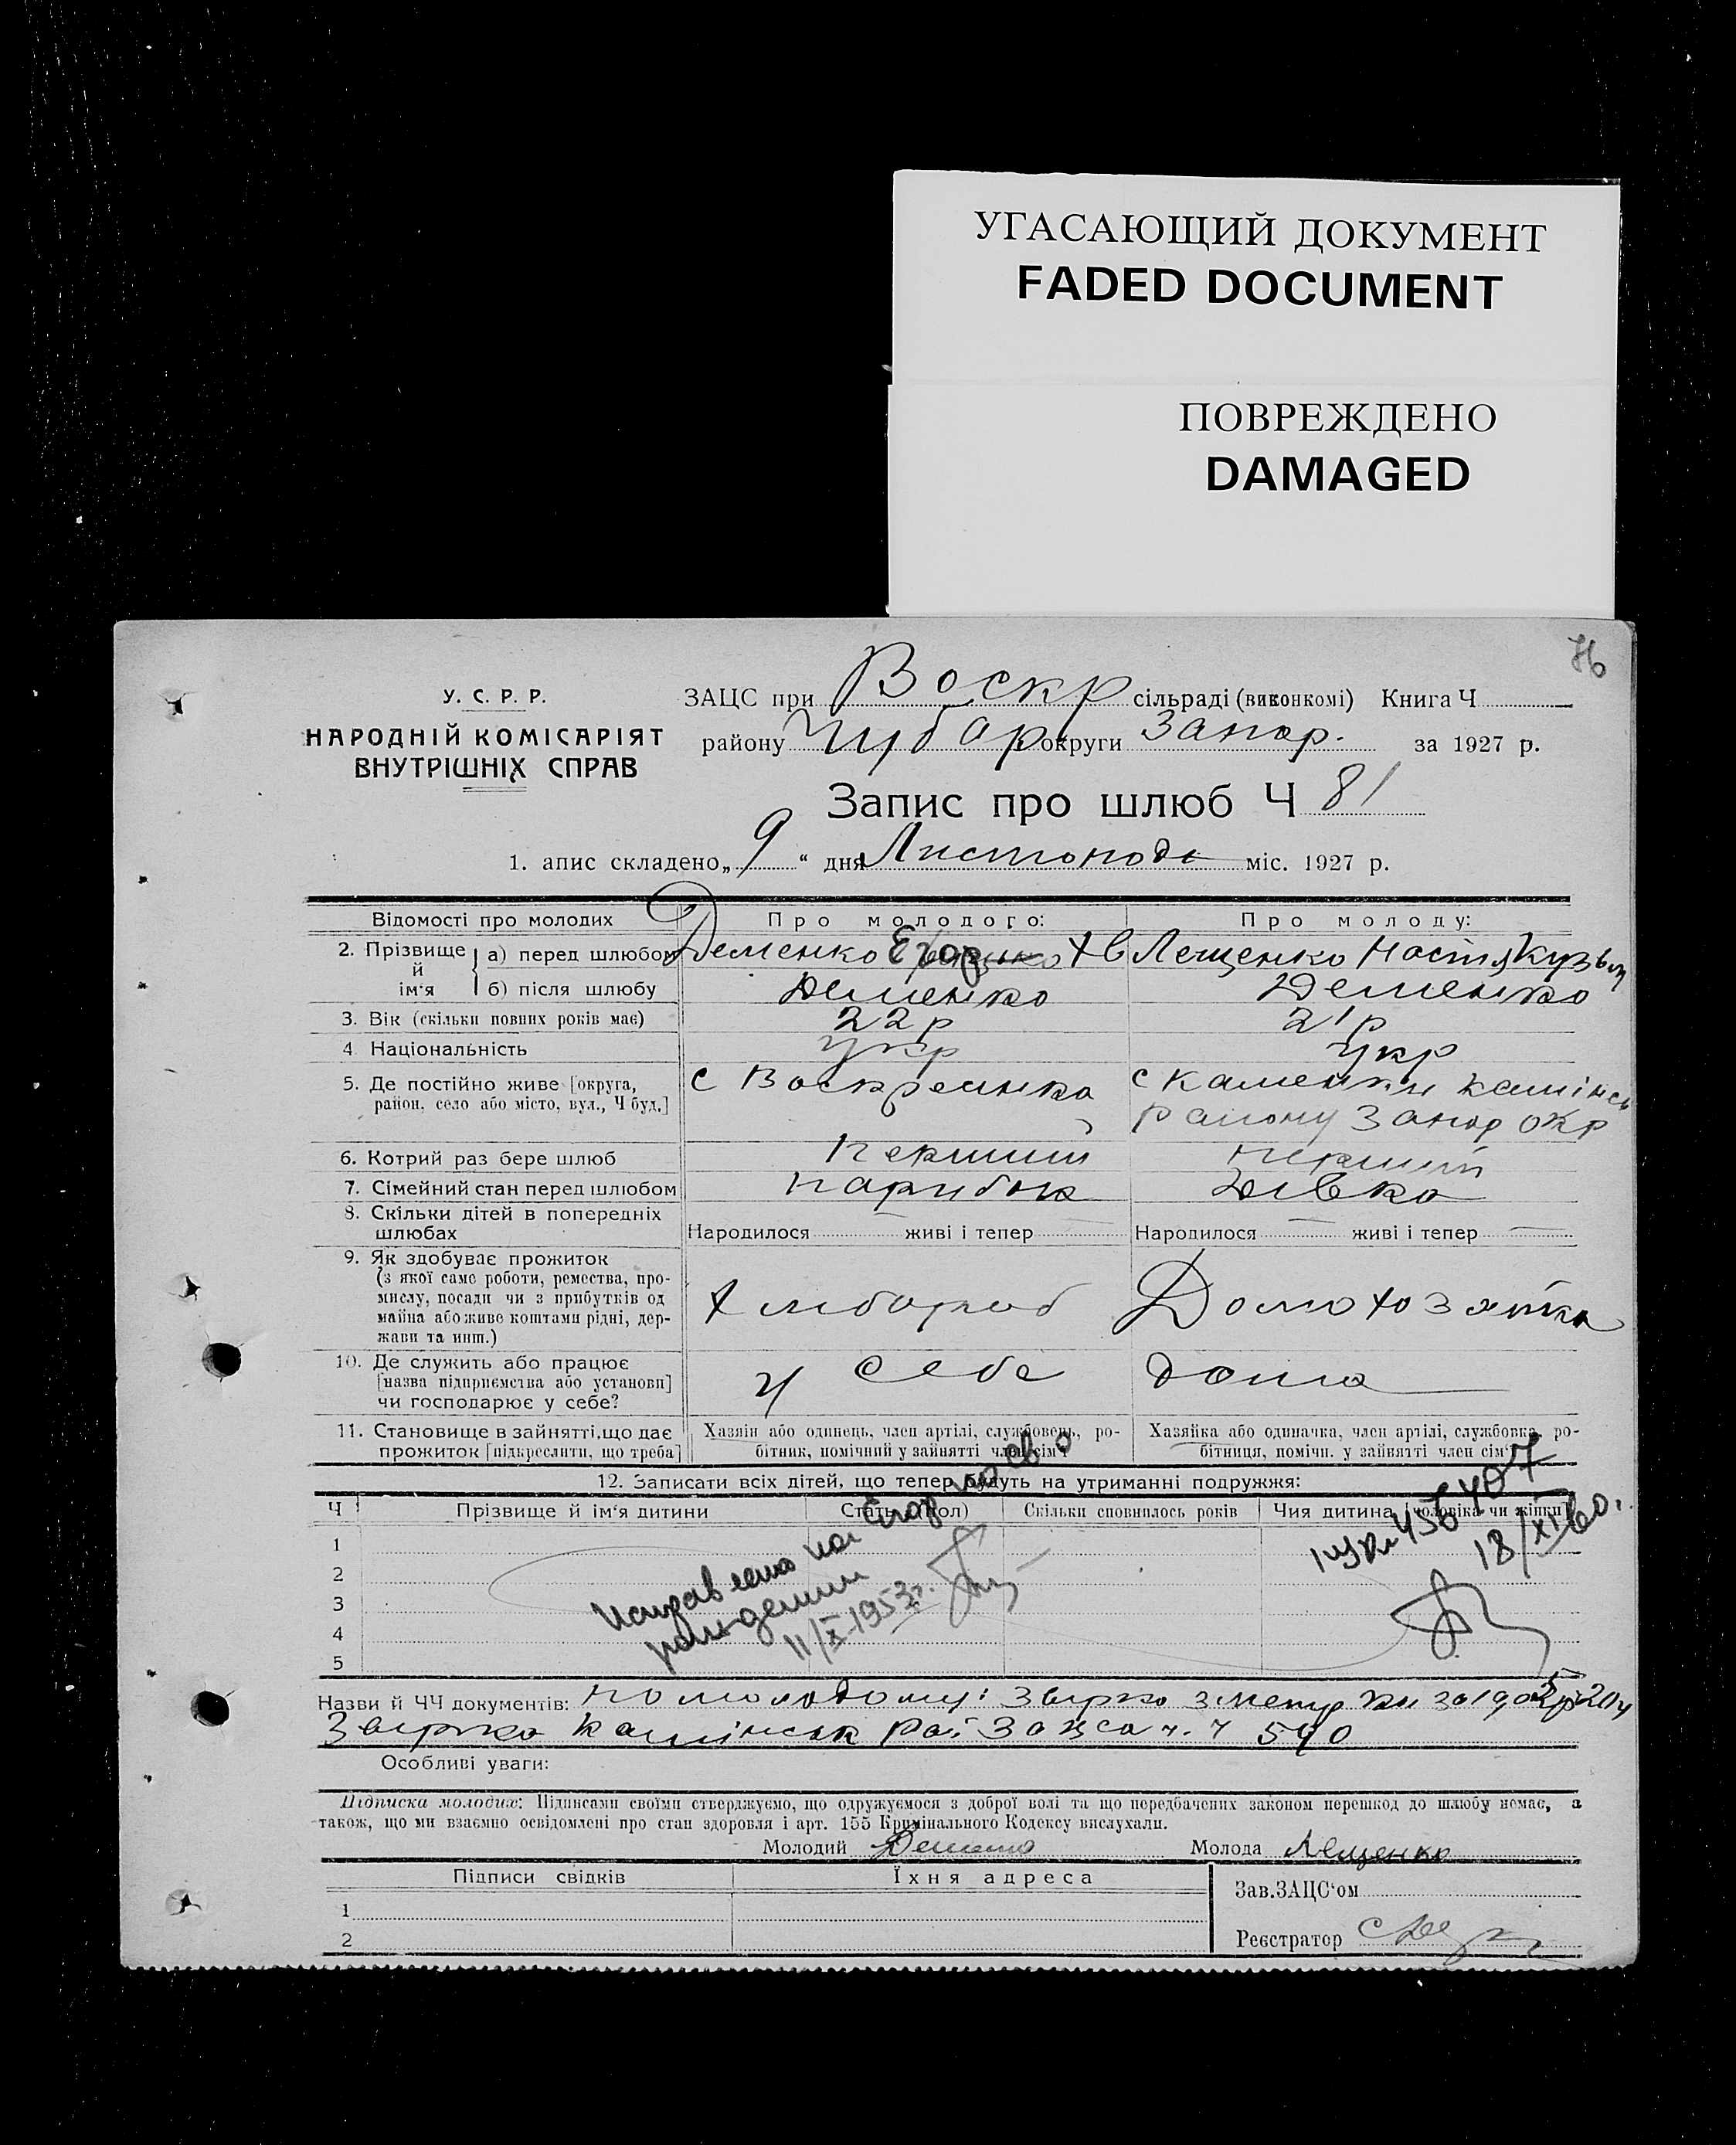 УГАСАЮЩИЙ ДОКУМЕНТ
FADED DOCUMENT
ПОВРЕЖДЕНО
DAMAGED
76
У. С. Р. Р.
НАРОДНІЙ КОМІСАРІЯТ
ВНУТРІШНІХ СПРАВ
ЗАЦС при Воскр сільраді (виконкомі) Книга Ч
району Чубар округи Запор. за 1927 р.
Запис про шлюб Ч 81
1. апис складено „9“ дня Листопода міс. 1927 р.
Відомості про молодих Про молодого: Про молоду:
2. Прізвище й ім'я а) перед шлюбом Деменко Егор Хв Лещенко Настя Кузьм
б) після шлюбу Деменко Деменко
3. Вік (скільки повних років має) 22 р 21 р
4 Національність укр укр
5. Де постійно живе [округа, район, село або місто, вул., Ч буд.] с Воскресинка с Каменки Камінсь
району Запор окр
6. Котрий раз бере шлюб перший перший
7. Сімейний стан перед шлюбом парубок Дівка
8. Скільки дітей в попередніх шлюбах Народилося живі і тепер Народилося живі і тепер
9. Як здобуває прожиток
(з якої саме роботи, ремества, про-
мислу, посади чи з прибутків од
майна або живе коштами рідні, дер-
жави та инш.)
Хлібороб Домохозяйка
10. Де служить або працює
[назва підприємства або установи]
чи господарює у себе?
У себе дома
11. Становище в зайнятті, що дає
прожиток [підкреслити, що треба]
Хазяін або одинець, член артілі, службовець, ро-
бітник, помічний у зайнятті член сім'ї
Хазяйка або одиначка, член артілі, службовка, ро-
бітниця, помічн. у зайнятті член сім'ї
12. Записати всіх дітей, що тепер будуть на утриманні подружжя:
Ч Прізвище й ім'я дитини Стать (пол) Скільки сповнилось років Чия дитина [чоловіка чи жінки]
1
2
3
4
5
Направлено на Егор по св о
рождении
11/X-1953г.
18/XI 60г.
Назви й ЧЧ документів: по молодому: Звірко з метрики за 1905р Ч 20
Звірко Камінськ рай Зацса ч. Ч 540
Особливі уваги:
Підписка молодих: Підписами своїми стверджуємо, що одружуємося з доброї волі та що передбачених законом перешкод до шлюбу немає, а
також, що ми взаємно освідомлені про стан здоровля і арт. 155 Кримінального Кодексу вислухали.
Молодий Деменко Молода Лещенко
Підписи свідків Їхня адреса
Зав.ЗАЦС'ом
1
2
Реєстратор